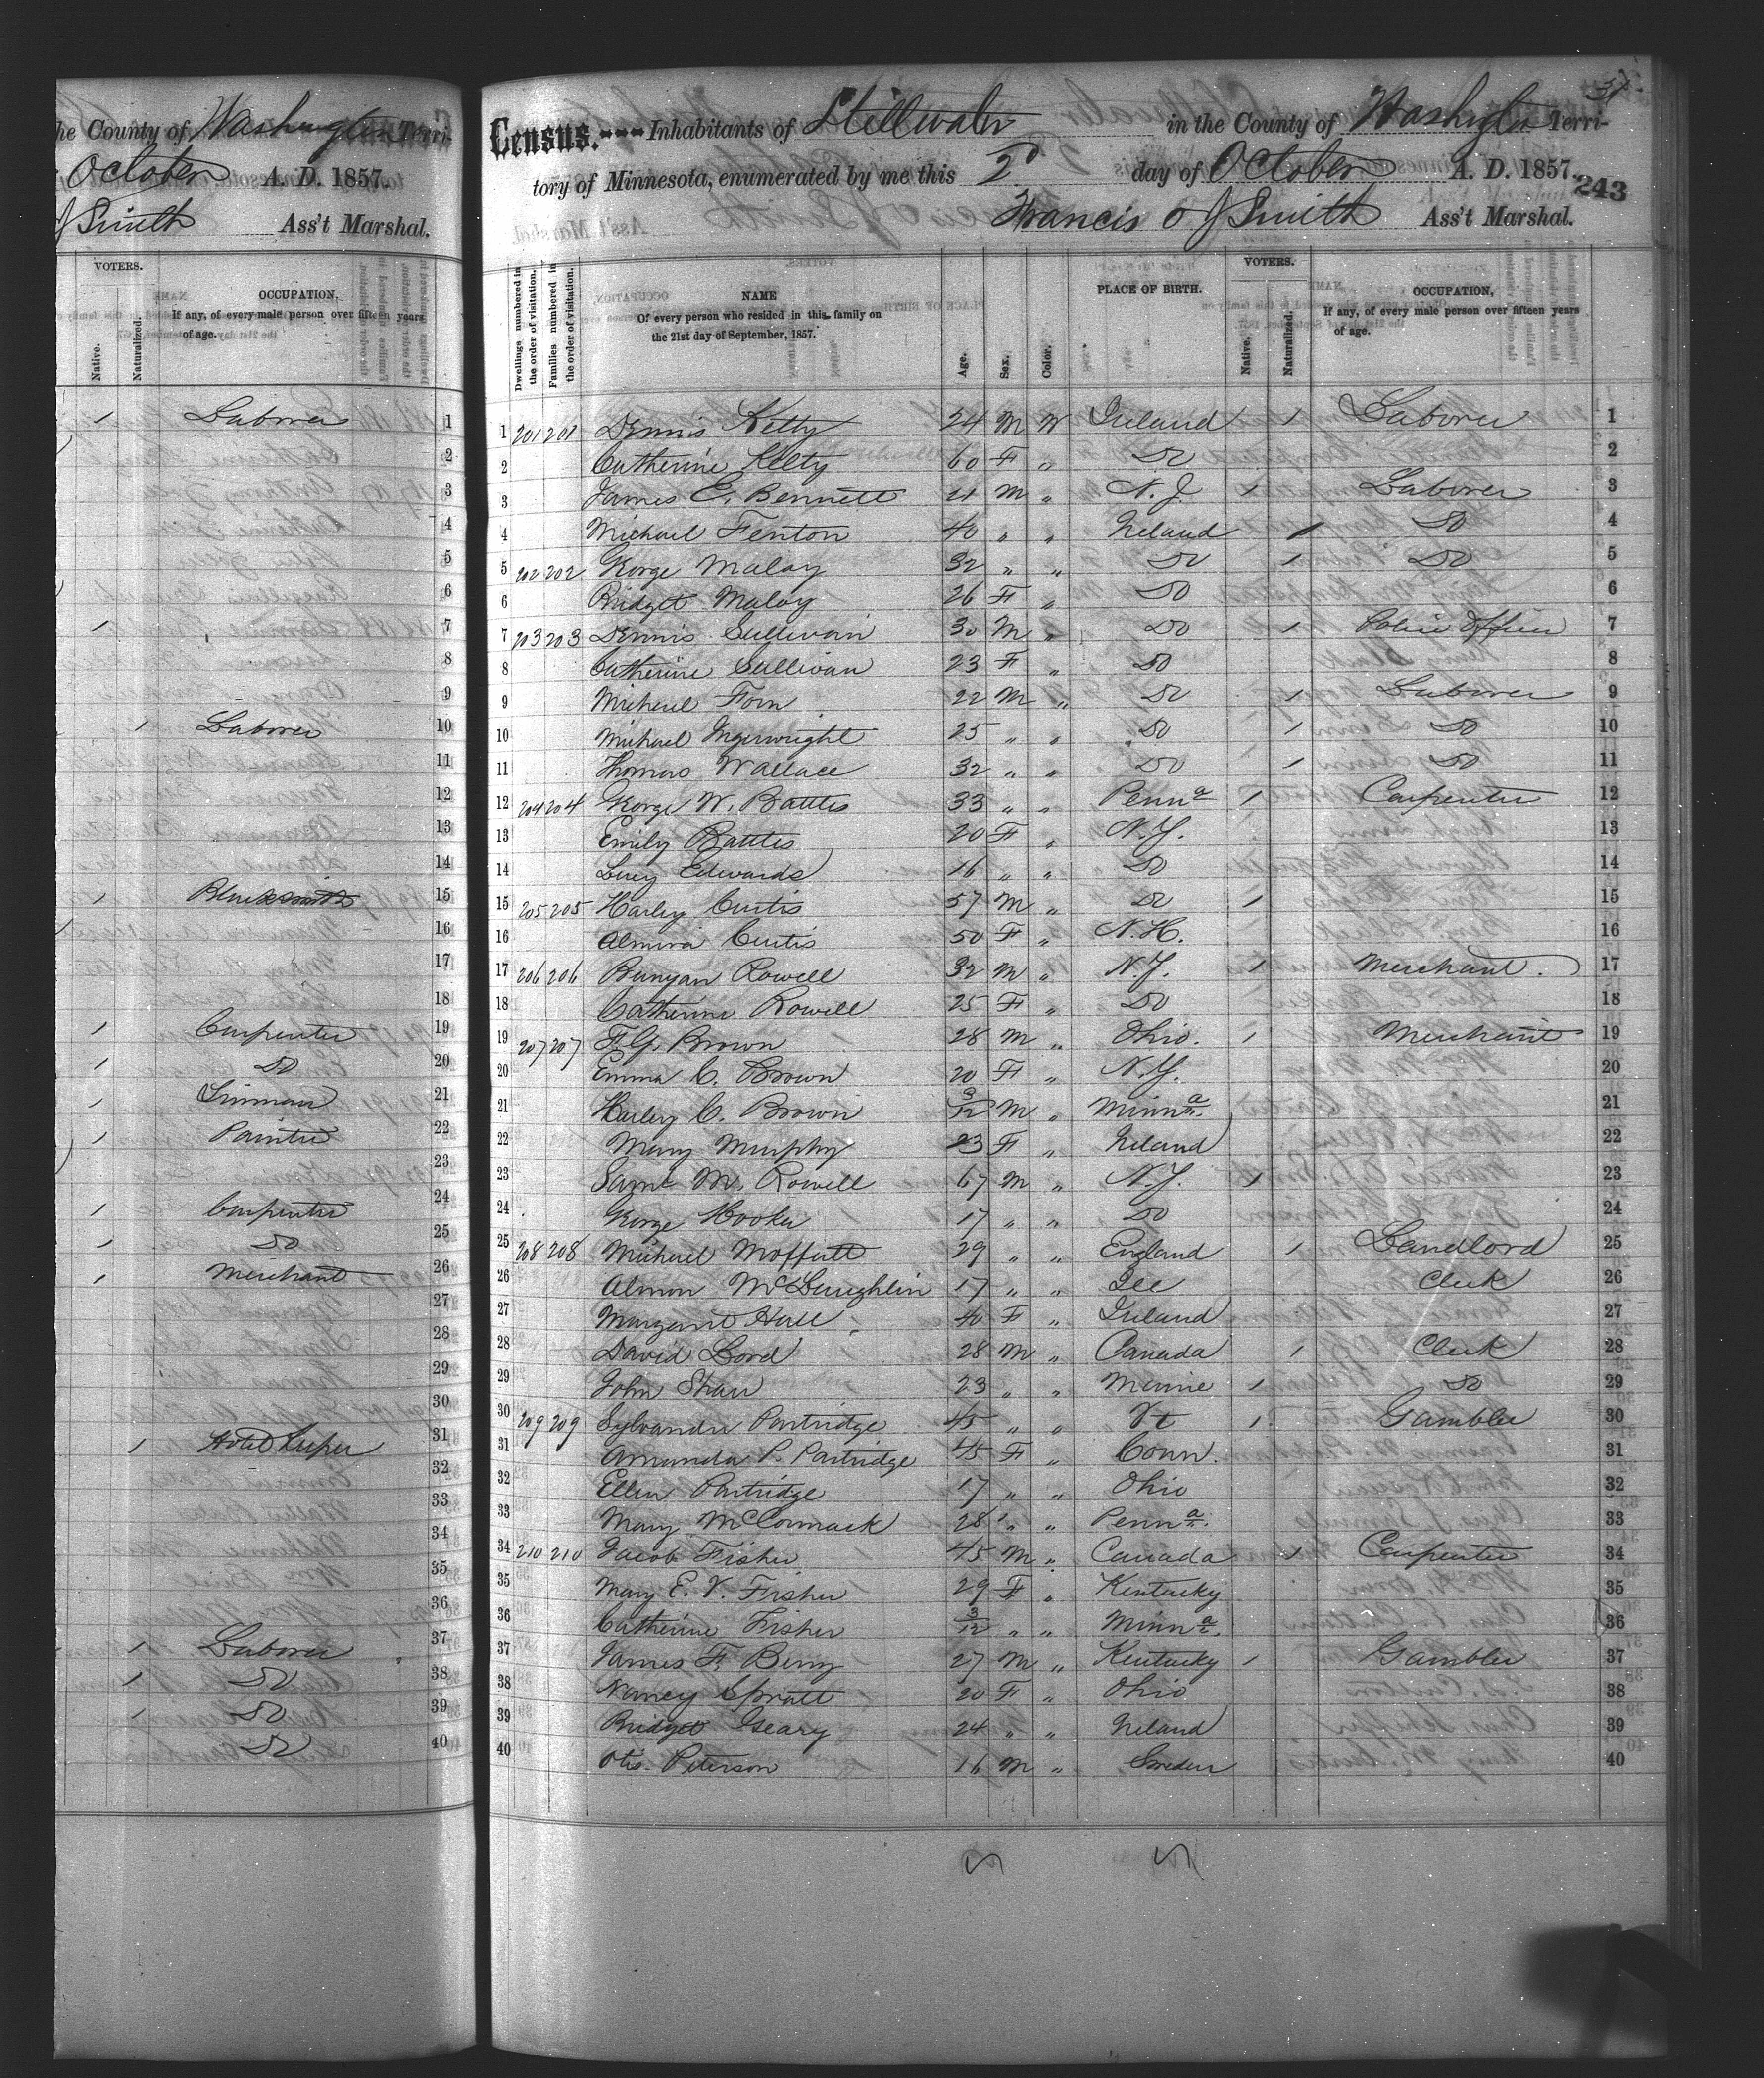 he County of Washington Terri-
October A. D. 1857.
J Smith Ass't Marshal.
VOTERS.
Native.
Naturalized.
OCCUPATION,
If any, of every male person over fifteen years
of age.
Laborer 1
2
3
4
5
6
7
8
9
Laborer 10
11
12
13
14
Blacksmith 15
16
17
18
Carpenter 19
Do 20
Tinman 21
Painter 22
23
Carpenter 24
Do 25
Merchant 26
27
28
29
30
Hotel Keeper 31
32
33
34
35
36
Laborer 37
Do 38
Do 39
Do 40
37
Census.---Inhabitants of Stillwater in the County of Washington Terri-
tory of Minnesota, enumerated by me this 2d day of October A. D. 1857.
243
Francis O J Smith Ass't Marshal.
Dwellings numbered in the order of visitation.
Families numbered in the order of visitation.
NAME
Of every person who resided in this family on
the 21st day of September, 1857.
Age.
Sex.
Color.
PLACE OF BIRTH.
VOTERS.
Native.
Naturalized.
OCCUPATION,
If any, of every male person over fifteen years
of age.
1 201 201 Dennis Kelty 24 M W Ireland 1 Laborer 1
2 Catherine Kelty 60 F " Do 2
3 James E. Bennett 21 M " N. J. 1 Laborer 3
4 Michael Fenton 40 " " Ireland 1 Do 4
5 202 202 George Maloy 32 " " Do 1 Do 5
6 Bridget Maloy 26 F " Do 6
7 203 203 Dennis Sullivan 30 M " Do 1 Police Officer 7
8 Catherine Sullivan 23 F " Do 8
9 Michael Forn 22 M " Do 1 Laborer 9
10 Michael 25 " " Do 1 Do 10
11 Thomas Wallace 32 " " Do 1 Do 11
12 204 204 George W. Battles 33 " " Penna 1 Carpenter 12
13 Emily Battles 20 F " N. Y. 13
14 Lucy Edwards 16 " " Do 14
15 205 205 Harley Curtis 57 M " Do 1 15
16 Almira Curtis 50 F " N. H. 16
17 206 206 Bunyan Rowell 32 M " N. Y. 1 Merchant. 17
18 Catherine Rowell 25 F " Do 18
19 207 207 F. G. Brown 28 M " Ohio. 1 Merchant 19
20 Emma C. Brown 20 F " N. Y. 20
21 Harley C. Brown 9/12 M " Minna. 21
22 Mary Murphy 23 F " Ireland 22
23 Saml M. Rowell 67 M " N. Y. 1 23
24 George Hooker 17 " " Do 24
25 208 208 Michael Moffatt 29 " " England 1 Landlord 25
26 Almon McLaughlin 17 " " Ill Clerk 26
27 Margaret Hall 40 F " Ireland 27
28 David Lord 28 M " Canada 1 Clerk 28
29 John Shaw 23 " " Maine 1 Do 29
30 209 209 Sylvander Partridge 45 " " Vt 1 Gambler 30
31 Amanda P. Partridge 45 F " Conn. 31
32 Ellen Partridge 17 " " Ohio 32
33 Mary McCormack 28 " " Penna. 33
34 210 210 Jacob Fisher 45 M " Canada 1 Carpenter 34
35 Mary E. V. Fisher 29 F " Kentucky 35
36 Catherine Fisher 3/12 " " Minna. 36
37 James F. Berry 27 M " Kentucky 1 Gambler 37
38 Nancy Spratt 20 F " Ohio 38
39 Bridget Geary 24 " " Ireland 39
40 Otis Peterson 16 M " Sweden 40